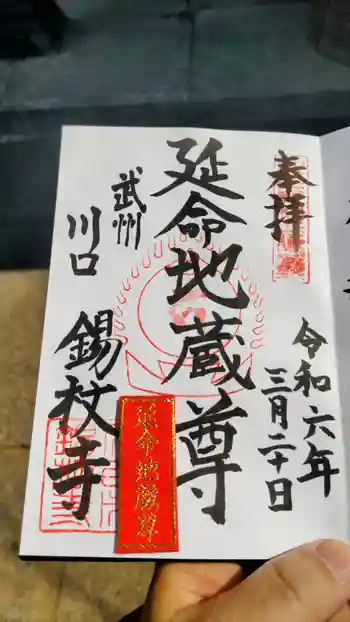 奉拝
令和六年
三月二十日
延命地蔵尊
武州
川口
錫杖寺
延命地蔵尊